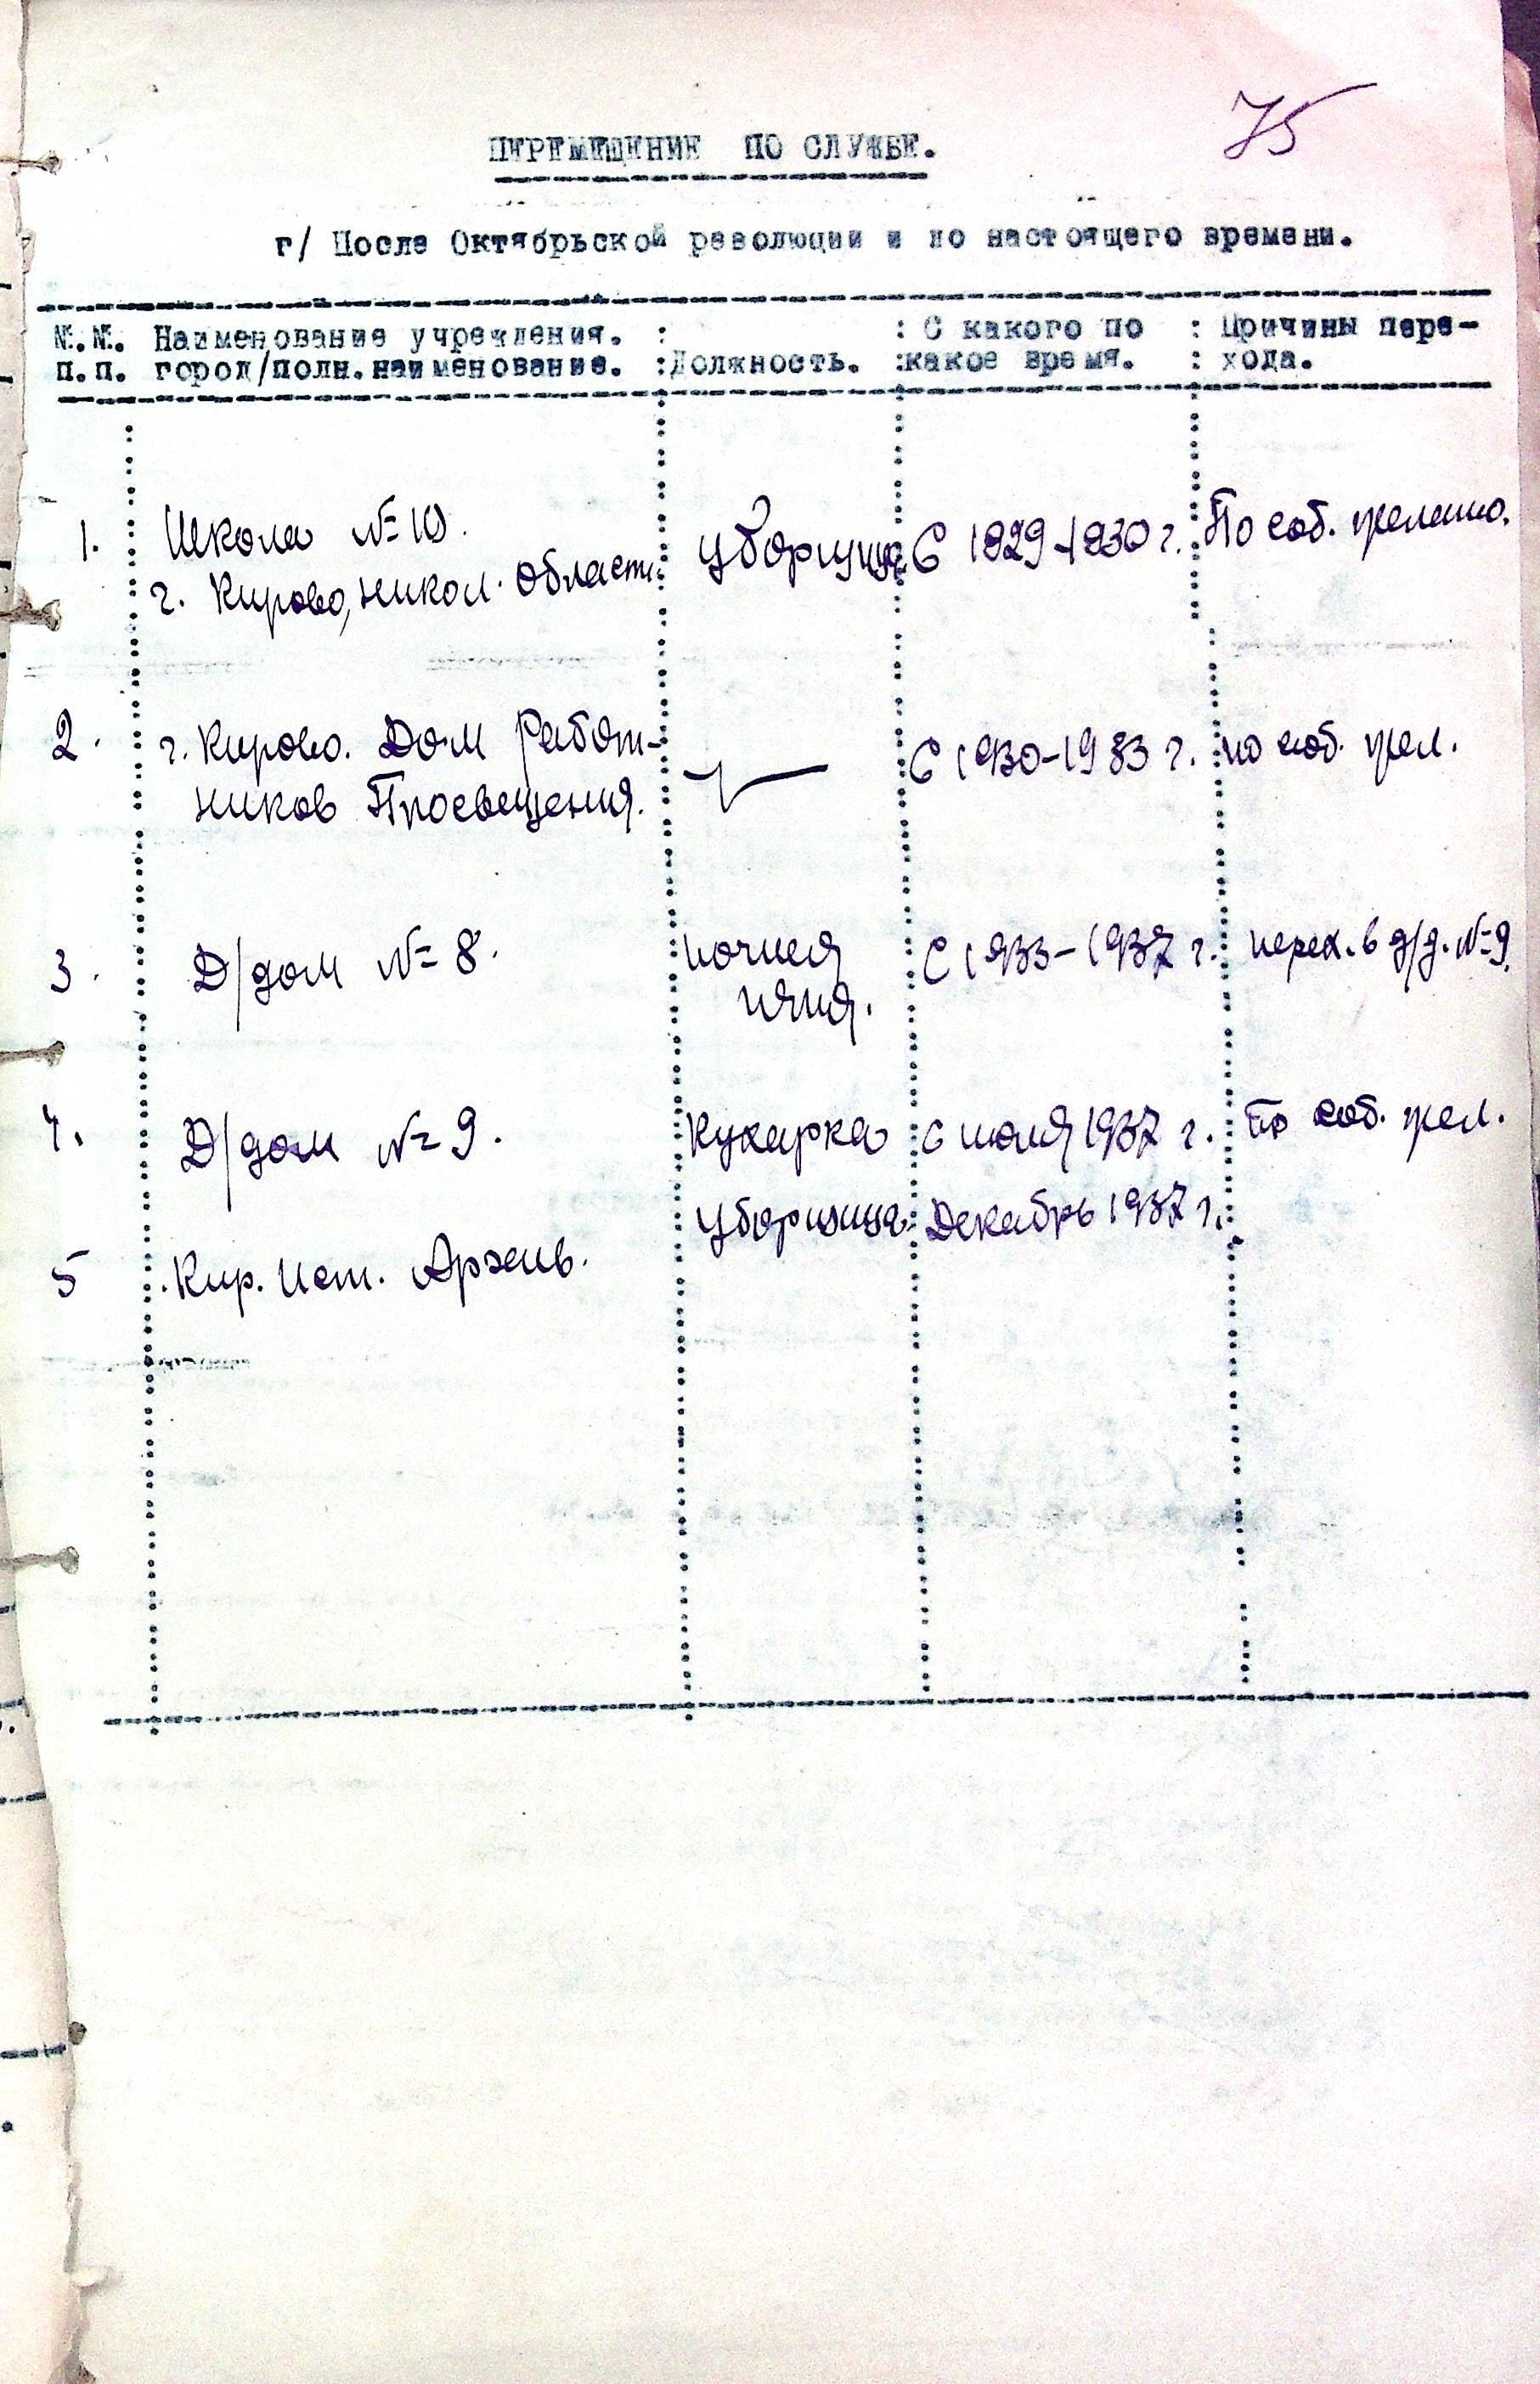 75
ПЕРЕМЕЩЕНИЕ ПО СЛУЖБЕ.
г/ После Октябрьской революции и до настоящего времени.
№.№. Наименование учреждения. : : С какого по : Причины пере-
п.п. город/полн.наименование. :Должность. :какое время. : хода.
1. Школа №10. Уборщица С 1929-1930 г. По соб. желанию.
г. Кирово, Никол. области
2. г. Кирово. Дом Работ- С 1930-1933 г. по соб. жел.
ников Просвещения.
3. Д/дом №8. ночная С 1933-1937 г. перех. в д/д. №9.
няня.
4. Д/дом №9. Кухарка с июля 1937 г. по соб. жел.
Уборщица Декабрь 1937 г.
5 Кир. Ист. Архив.